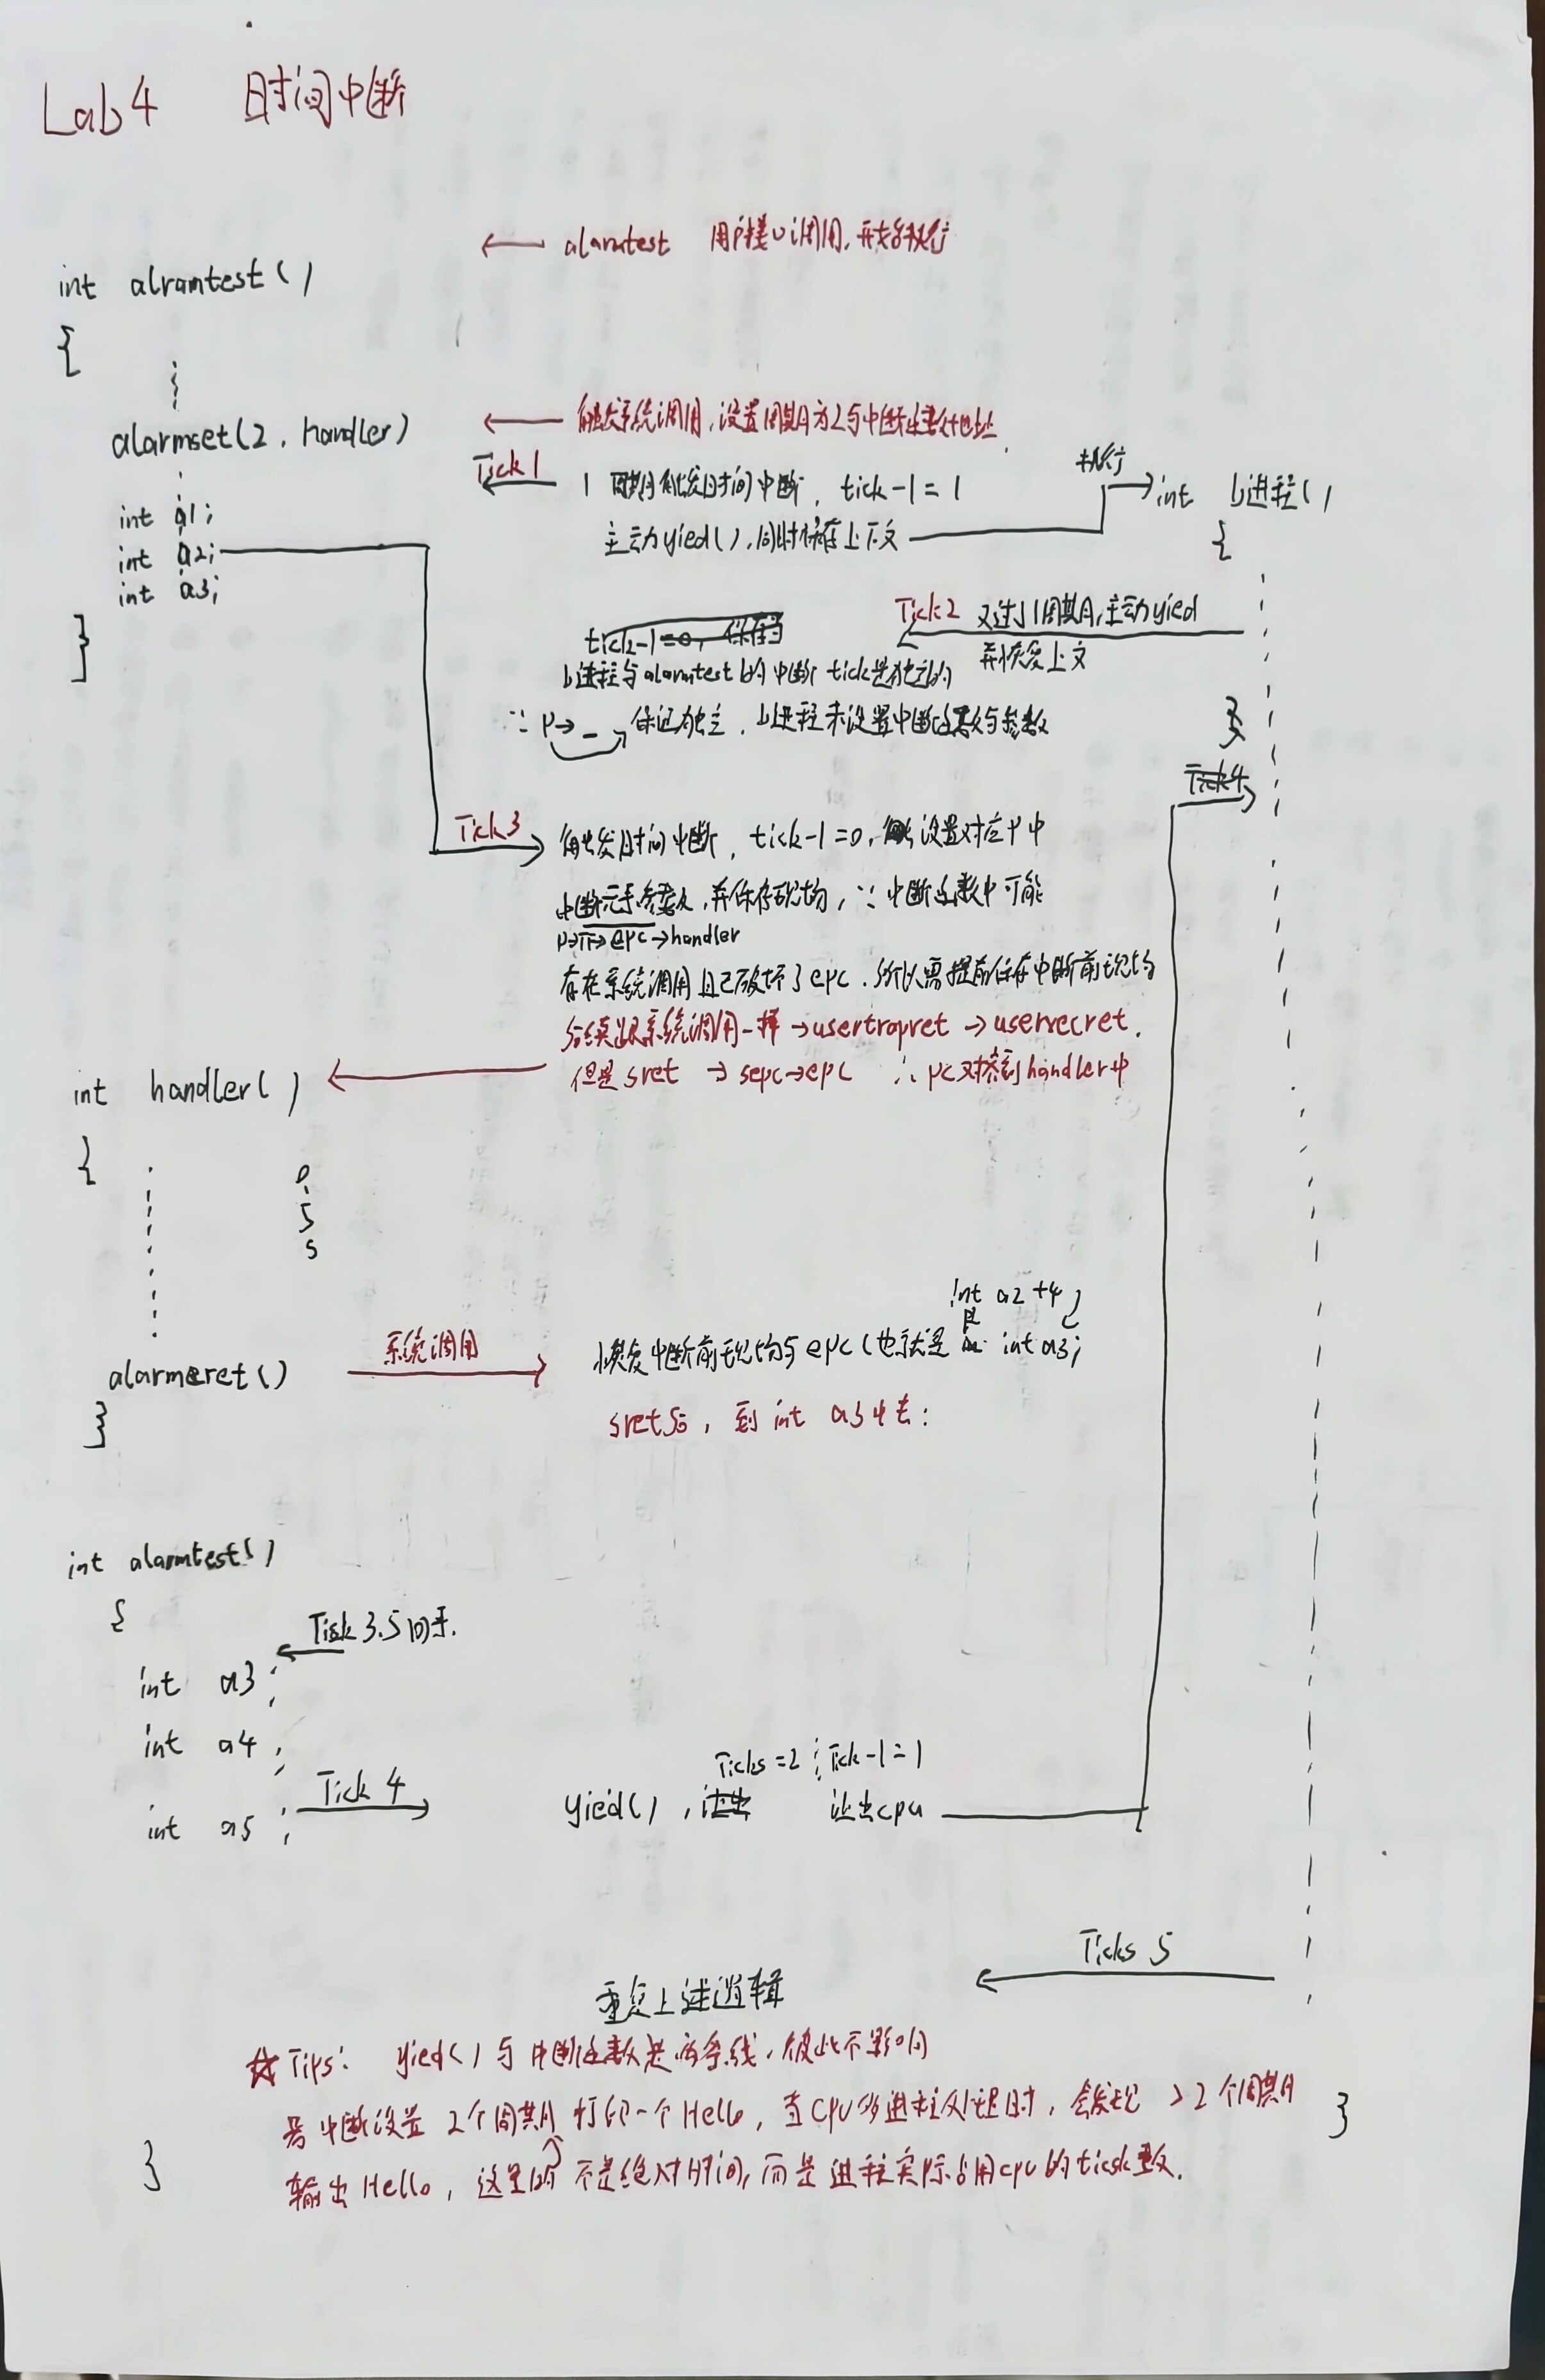 Lab4 时间中断
← alarmtest 用户接口调用,开始执行
int alramtest()
{
alarmset(2, handler)
← 触发系统调用,设置周期为2与中断函数地址
Tick1
1 周期触发时间中断, tick-1=1
执行
→ int b进程()
{
int a1;
主动yied(),同时保存上下文
int a2;
int a3;
}
Tick2 又过1周期,主动yied
并恢复上文
tick-1=0, 保存当
b进程与alarmtest的中断tick是独立的
∵ p→_ 保证独立, b进程未设置中断函数与参数
}
Tick4
Tick3
触发时间中断, tick-1=0, 设置对应p中
中断元素参数, 并保存现场, ∵ 中断函数中可能
p→tf→epc→handler
存在系统调用且已破坏了epc, 所以需提前保存中断前现场
后续跟系统调用一样→usertrapret→userecret.
但是sret → sepc→epc ∴ pc对标到handler中
int handler()
{
0.5s
int a2+4
alarmeret()
系统调用
恢复中断前现场与epc(也就是 int a3;
sret后, 到 int a3中去:
}
int alarmtest()
{
Tisk 3.5回来.
int a3;
int a4;
Ticks=2; Tick-1=1
Tick 4
int a5;
yied(), 让出 让出cpu
Ticks 5
重复上述逻辑
☆Tips: yied()与中断函数是两条线,彼此不影响
若中断设置 2个周期打印一个Hello, 当CPU多进程处理时, 会发现 >2个周期
}
}
输出Hello, 这里的 不是绝对时间, 而是进程实际占用cpu的ticsk数.